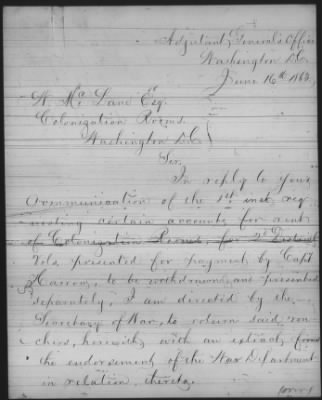 Adjutant General's Office
Washington D.C.
June 16th 1863.
W. McLane Esq.
Colonization Rooms.
Washington D.C.
Sir,
In reply to your
communication of the inst. req-
uesting certain accounts for rent
of Colonization Rooms, for 2d District
Vols presented for payment by Capt
to be withdrawn, and presented
separately, I am directed by the
Secretary of War, to return said vou-
chers, herewith, with an extract from
the endorsement of the War Department
in relation thereto.